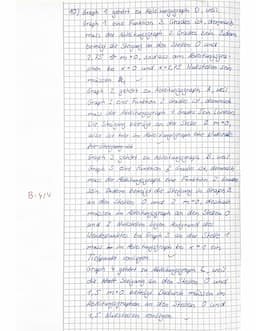 10) Graph 1 gehört zu Ableitungsgraph D, weil
Graph 1 eine Funktion 3. Grades ist, demnach
muss der Ableitungsgraph 2. Grades sein. Zudem
beträgt die Steigung an den Stellen 0 und
2,75 m=0, sodass am Ableitungsgra-
phen bei x=0 und x=2,75 Nullstellen sein
müssen.
Graph 2 gehört zu Ableitungsgraph A, weil
Graph 2 eine Funktion 2. Grades ist, demnach
muss der Ableitungsgraph 1. Grades sein
Die Steigung beträgt an der Stelle 2 m=0,
also ist hier im Ableitungsgraph eine Nullstelle
Graph 3 gehört zu Ableitungsgraph B, weil
Graph 3 eine Funktion 3. Grades ist, demnach
muss der Ableitungsgraph eine Funktion 2. Grades
sein. Zudem beträgt die Steigung in Graph 3
an den Stellen 0 und 2 m=0, deshalb
müssen im Ableitungsgraph an den Stellen 0
und 2 Nullstellen liegen. Aufgrund des
Wendepunktes bei Graph 3 an der Stelle 1
muss im Ableitungsgraph bei x=1 ein
Tiefpunkt vorliegen.
Graph 4 gehört zu Ableitungsgraph C, weil
die Steigung an den Stellen 0 und
1,5 m=0 beträgt. Dadurch müssen im
Ableitungsgraphen an den Stellen 0 und
1,5 Nullstellen vorliegen.
B: 4/4